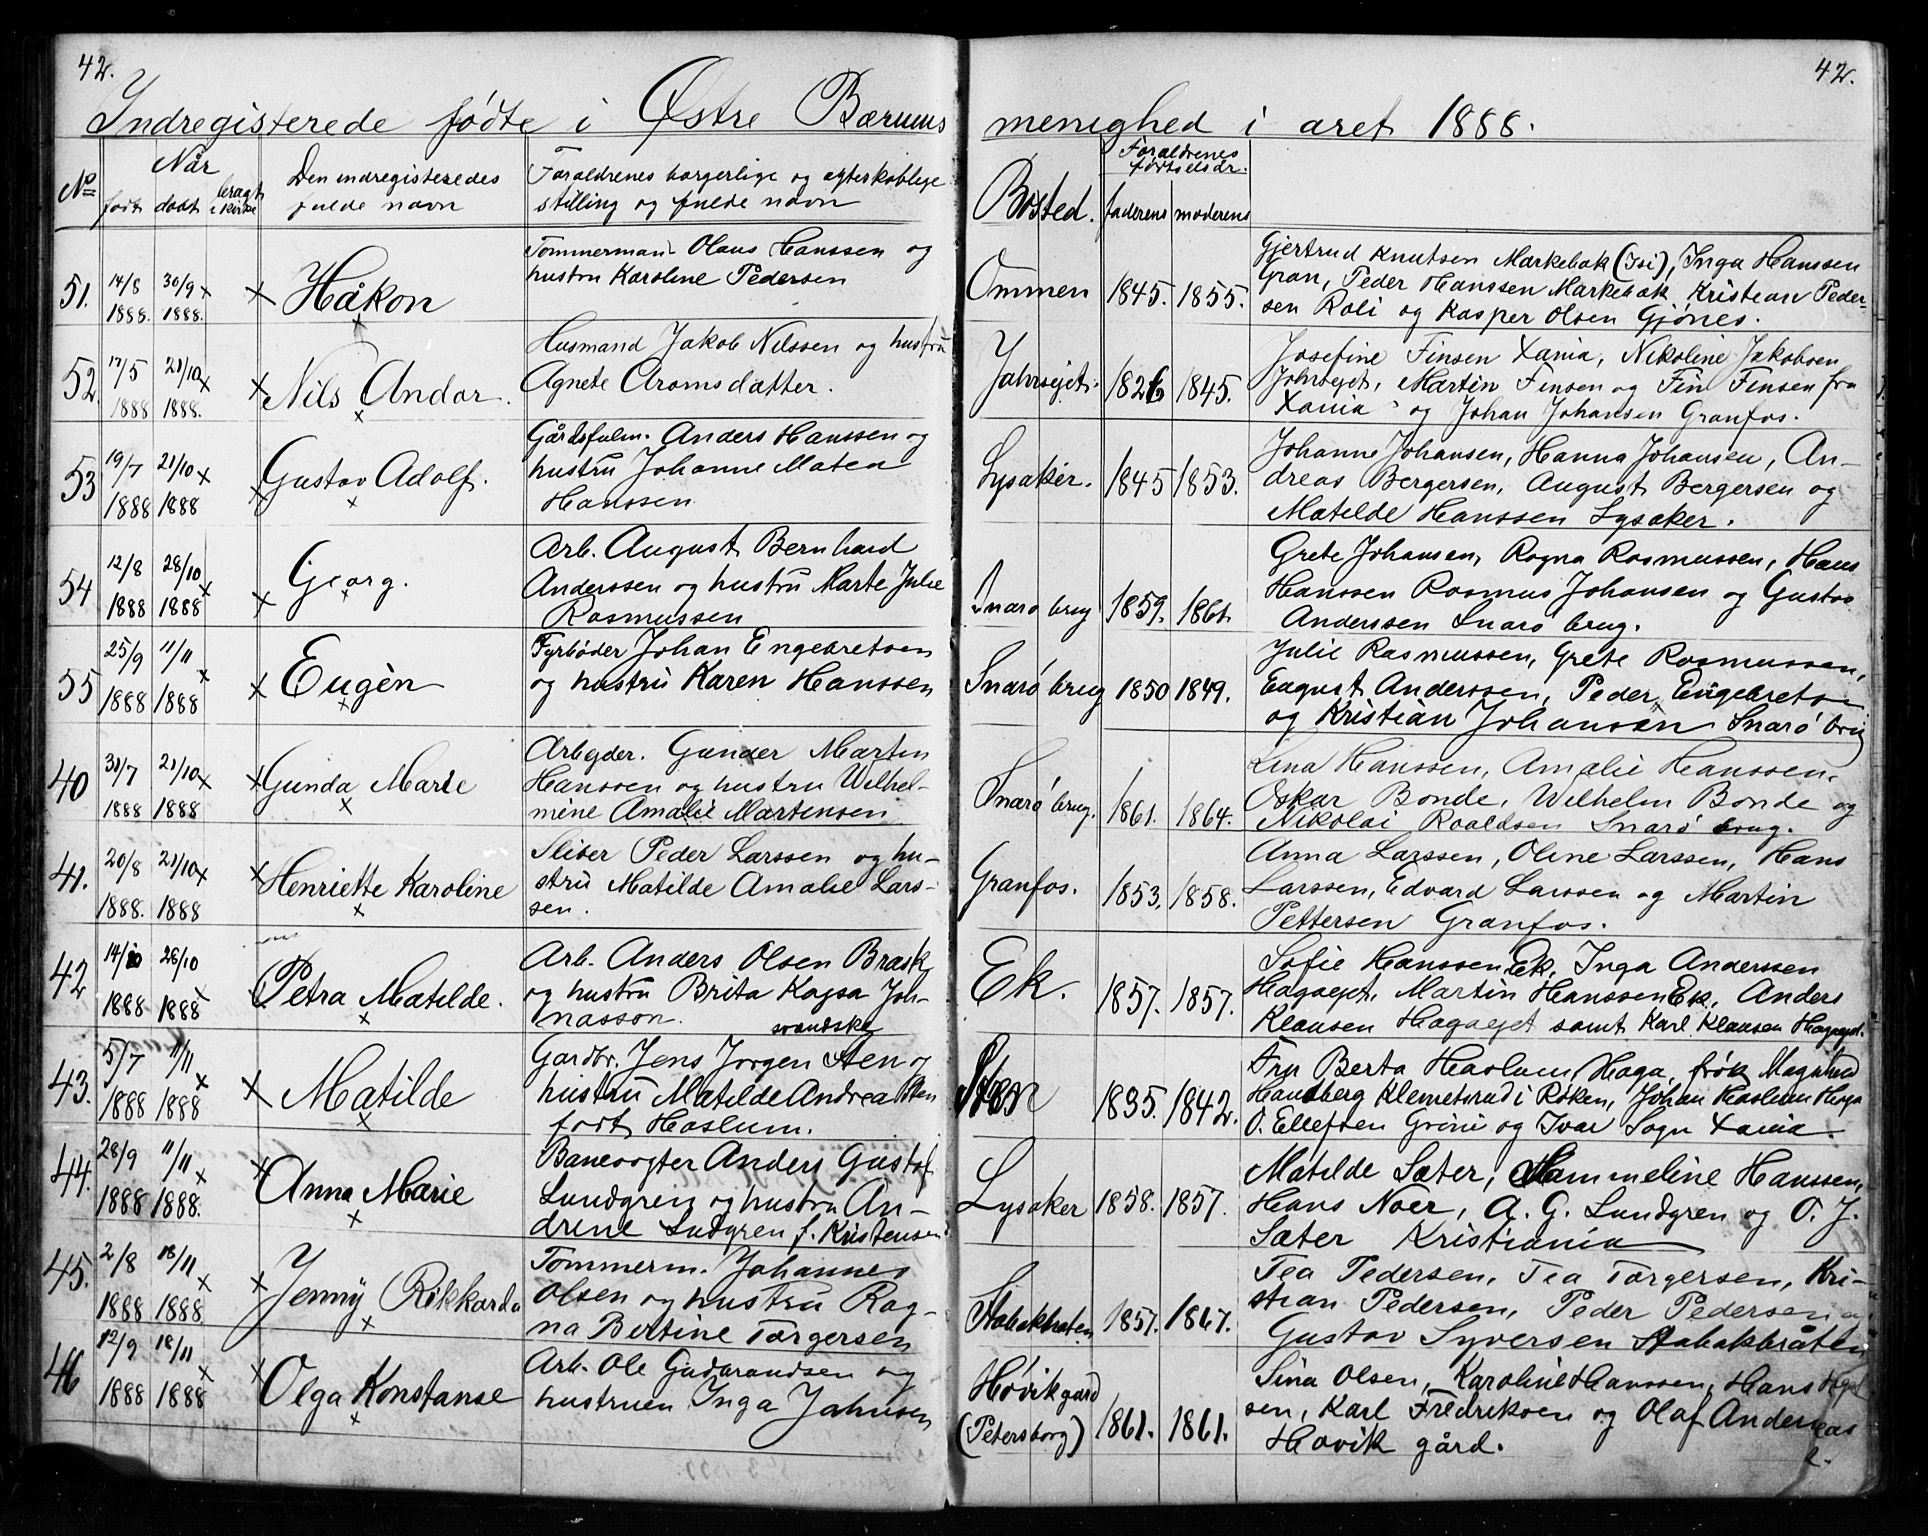 42.
42.
Indregisterede fødte i Østre Bærums menighed i aret 1888.
No Når født døbt bragt i kirke
Den indregisteredes fulde navn
Forældrenes borgerlige og ægteskablige stilling og fulde navn
Bosted.
Forældrenes fødselsår. faderens moderens
51. 14/8 1888. 30/9 1888. x x Håkon x
Tømmermand Olaus Hanssen og
hustru Karoline Pedersen
Ommen 1845. 1855.
Gjertrud Knutsen Markebæk (Isi), Inga Hanssen
Gran, Peder Hanssen Markebæk, Kristian Peder-
sen Roli og Kasper Olsen Gjønes.
52. 17/5 1888 21/10 1888. x x Nils Andor. x
Husmand Jakob Nilssen og hustru
Agnete Aromsdatter.
Jahrsejet. 1826 1845.
Josefine Finsen Xania, Nikoline Jakobsen
Jahrsejet, Martin Finsen og Fin Finsen fra
Xania og Johan Johansen Granfos.
53 19/7 1888 21/10 1888 x x Gustav Adolf. x
Gårdsfulm. Anders Hanssen og
hustru Johanne Matea
Hanssen
Lysaker. 1845 1853.
Johanne Johansen, Hanna Johansen, An-
dreas Bergersen, August Bergersen og
Matilde Hanssen Lysaker.
54 12/8 1888 28/10 1888 x x Georg. x
Arb. August Bernhard
Anderssen og hustru Marte Julie
Rasmussen
Snarø brug 1859. 1861.
Grete Johansen, Ragna Rasmussen, Hans
Hanssen Rasmus Johansen og Gustav
Anderssen Snarø brug.
55 25/9 1888 11/11 1888 x x Eugèn x
Fyrbøder Johan Engebretsen
og hustru Karen Hanssen
Snarø brug 1850 1849.
Julie Rasmussen, Grete Rasmussen,
August Anderssen, Peder Engebretsen
og Kristian Johansen Snarø brug
40 31/7 1888 21/10 1888 x x Gunda Marie x
Arbejder. Gunder Martin
Hanssen og hustru Wilhel-
mine Amalie Martensen
Snarø brug. 1861. 1864.
Lina Hanssen, Amalie Hanssen,
Oskar Bonde, Wilhelm Bonde og
Nikolai Roaldsen Snarø brug.
41. 20/8 1888. 21/10 1888 x x Henriette Karoline x
Sliber Peder Larssen og hu-
stru Matilde Amalie Lars-
sen.
Granfos. 1853. 1858.
Anna Larssen, Oline Larssen, Hans
Larssen, Edvard Larssen og Martin
Pettersen Granfos.
42 14/10 1888 26/10 1888 x x Petra Matilde. x
Arb. Anders Olsen Brask
og hustru Brita Kajsa Joh-
nasson. svenske
Ek. 1857. 1857.
Sofie Hanssen Ek, Inga Anderssen
Hagaejet, Martin Hanssen Ek, Anders
Klausen Hagaejet samt Karl Klausen Hagaejet.
43. 5/7 1888 11/11 1888 x x Matilde x
Gardbr. Jens Jørgen Sten og
hustru Matilde Andrea Sten
født Haslum.
Sten 1835. 1842.
Fru Berta Haslum Haga, frøk Magnhild
Handberg Klemetsrud i Røken, Johan Haslum Haga
O. Ellefsen Grini og Ivar Sogn Xania.
44. 28/9 1888 11/11 1888. x x Anna Marie x
Banevogter Anders Gustaf
Lundgren og hustru An-
drine Ludgren f. Kristensen
Lysaker 1858. 1857.
Matilde Sæter, Hammeline Hanssen,
Hans Noer, A. G. Lundgren og O. J.
Sæter Kristiania
45. 2/8 1888 18/11 1888 x x Jenny Rikkarda x
Tømmerm. Johannes
Olsen og hustru Rag-
na Bertine Torgersen
Stabækbråten 1857. 1867.
Tea Pedersen, Tea Torgersen, Kri-
stian Pedersen, Peder Pedersen og
Gustav Syversen Stabækbråten
46 12/9 1888 18/11 1888 x x Olga Konstanse x
Arb. Ole Gudbrandsen og
hustruen Inga Jahnsen
Høvik gard (Petersborg) 1861. 1861.
Sina Olsen, Karoline Hanssen, Hans
sen, Karl Fredriksen og Olaf Andersens
Høvik gård.